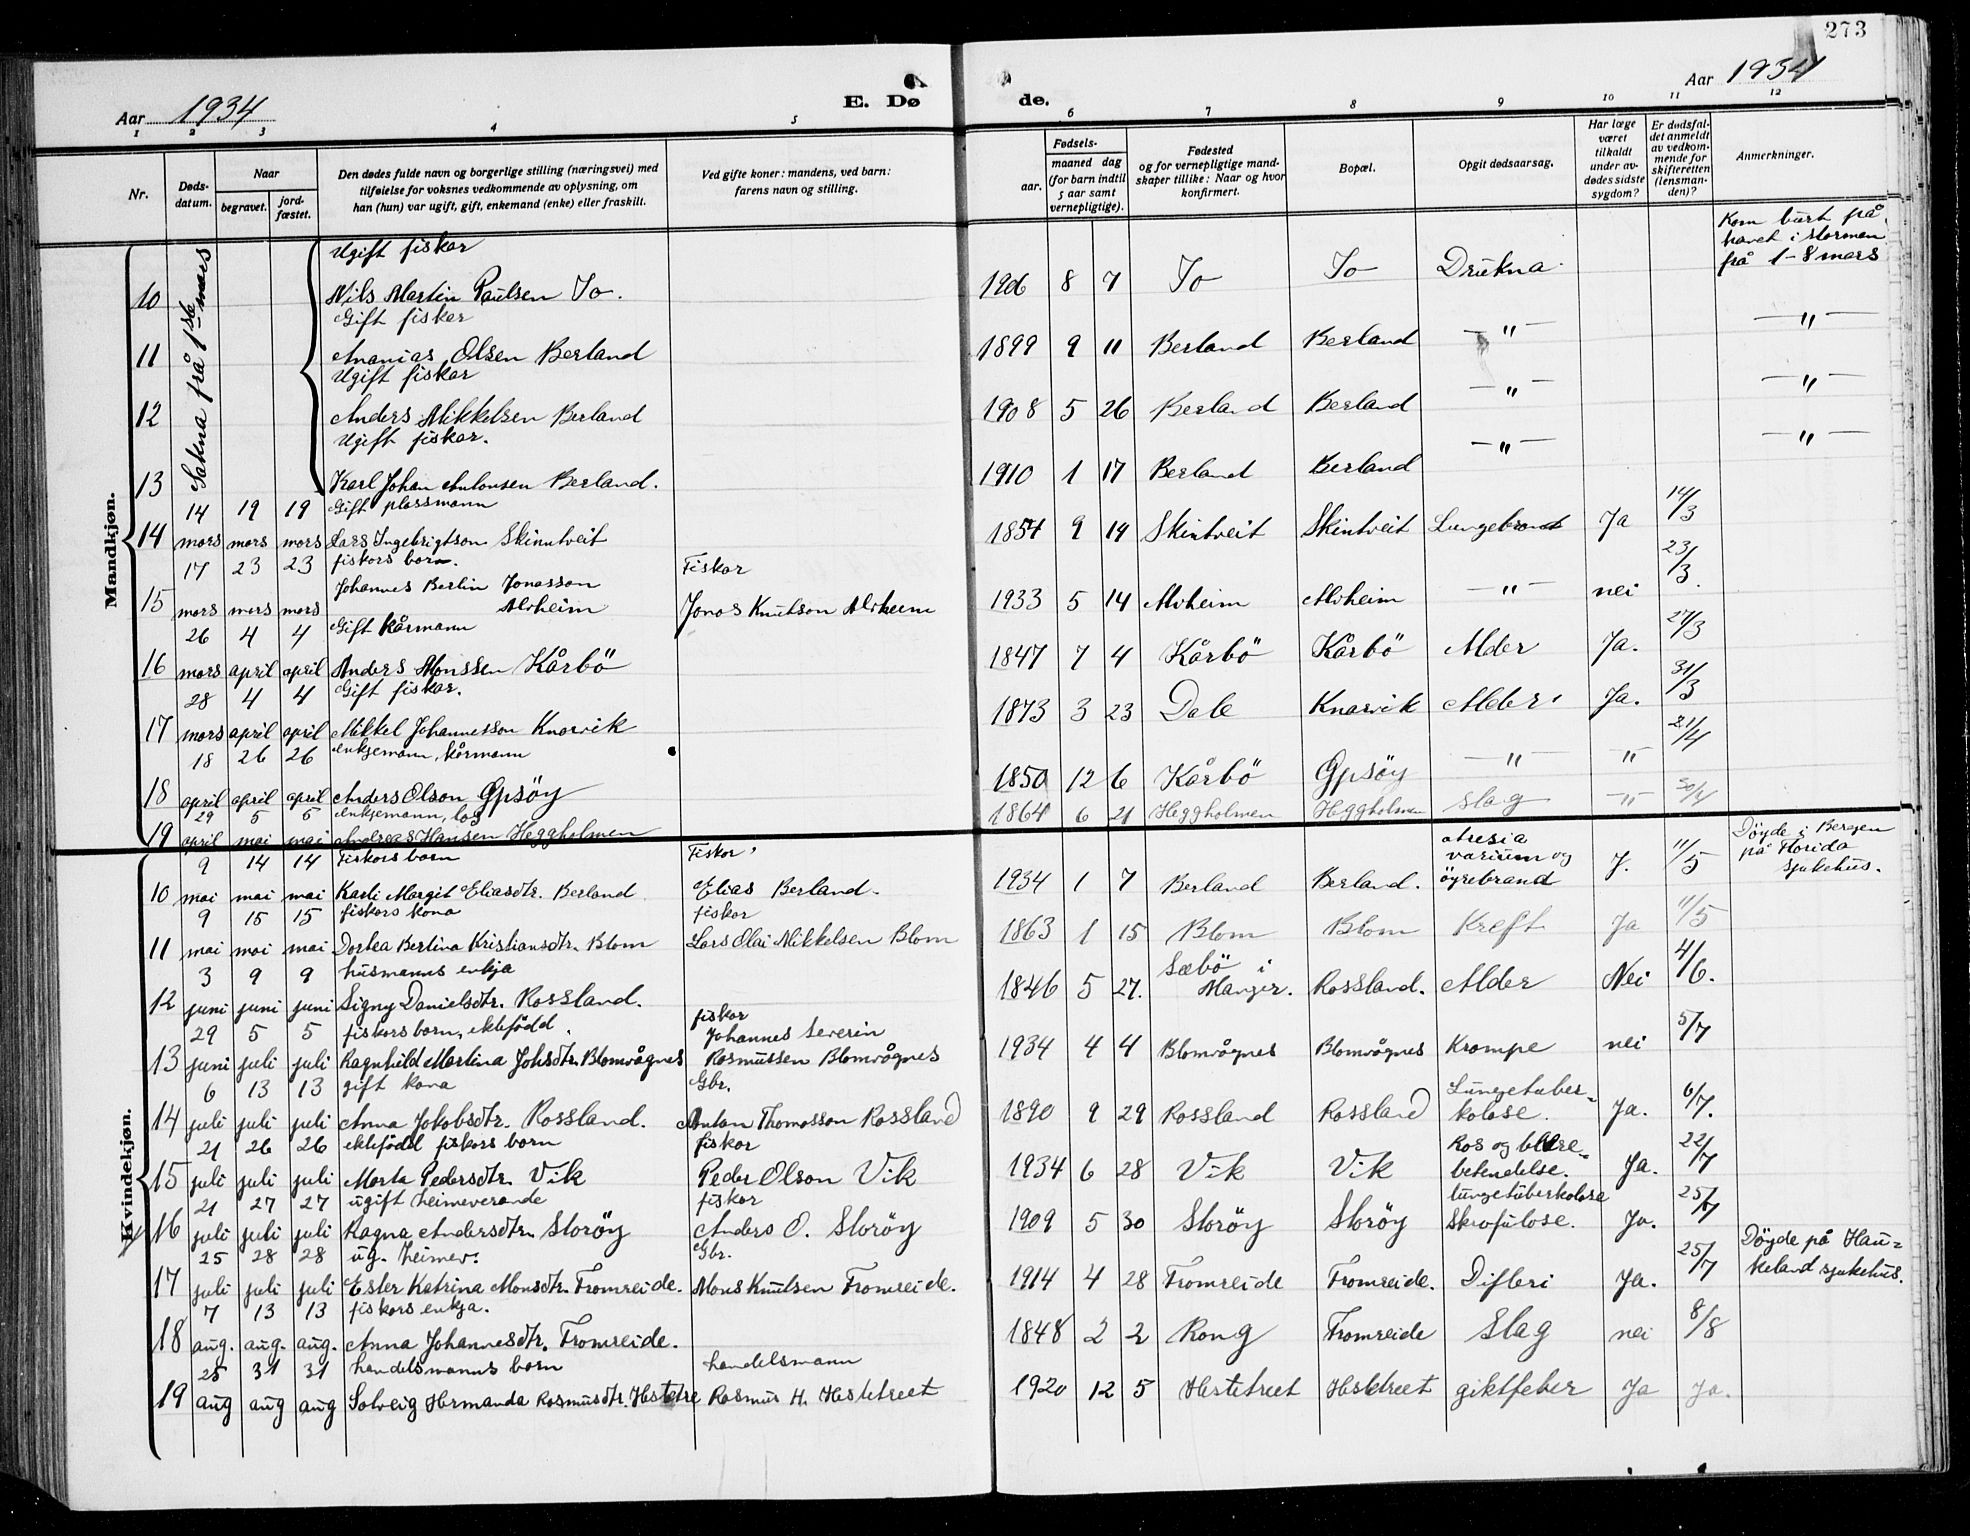 273
Aar 1934
E. Dø
de.
Aar 1934
1 2 3 4 5 6 7 8 9 10 11 12
Nr.
Døds-
datum.
Naar
begravet.
jord-
fæstet.
Den dødes fulde navn og borgerlige stilling (næringsvei) med
tilføielse for voksnes vedkommende av oplysning, om
han (hun) var ugift, gift, enkemand (enke) eller fraskilt.
Ved gifte koner: mandens, ved barn:
farens navn og stilling.
Fødsels-
aar.
maaned dag
(for barn indtil
5 aar samt
vernepligtige).
Fødested
og for vernepligtige mand-
skaper tillike: Naar og hvor
konfirmert.
Bopæl.
Opgit dødsaarsag.
Har læge
været
tilkaldt
under av-
dødes sidste
sygdom?
Er dødsfal-
det anmeldt
av vedkom-
mende for
skifteretten
(lensman-
den)?
Anmerkninger.
Mandkjøn.
Sakna frå 1ste mars
Ugift fiskar
10 Nils Martin Paulsen Jo. 1906 8 7 Jo Jo Drukna
Kom burt på
havet i stormen
frå 1-8 mars
Gift fiskar
11 Ananias Olsen Berland 1899 9 11 Berland Berland —"— —"—
Ugift fiskar
12 Anders Mikkelsen Berland 1908 5 26 Berland Berland —"— —"—
Ugift fiskar.
13 Karl Johan Antonsen Berland. 1910 1 17 Berland Berland —"— —"—
14 19 19 Gift plassmann
14 mars mars mars Lars Ingebrigtson Skinntveit 1854 9 19 Skintveit Skintveit Lungebrand Ja 14/3
17 23 23 fiskars barn. Fiskar
15 mars mars mars Johannes Berlin Jonasson
Alvheim Jonas Knutson Alvheim 1933 5 14 Alvheim Alvheim —"— nei 23/3.
26 4 4 Gift kårmann
16 mars april april Anders Monssen Kårbö 1847 7 4 Kårbö Kårbö Alder Ja. 27/3
28 4 4 Gift fiskar.
17 mars april april Mikkel Johannesson Knarvik 1873 3 23 Dale Knarvik Alder Ja. 31/3
18 26 26 enkjemann, kårmann
18 april april april Anders Olson Gpsöy 1850 12 6 Kårbö Gpsöy —"— —"— 21/4
29 5 5 enkjemann, los
19 april mai mai Andreas Hansen Heggholmen 1864 6 21 Heggholmen Heggholmen Slag —"— 30/4
Kvindekjøn.
9 14 14 Fiskars barn Fiskar
10 mai mai mai Karli Margit Eliasdtr. Berland Elias Berland. 1934 1 7 Berland Berland.
atresia
varium og
öyrebrand J. 11/5
Döyde i Bergen
på Florida
sjukehus.
9 15 15 fiskars kona fiskar
11 mai mai mai Dortea Bertina Kristiansdtr. Blom Lars Olai Mikkelsen Blom 1863 1 15 Blom Blom Kreft Ja 11/5
3 9 9 husmanns enkja
12 juni juni juni Signy Danielsdtr. Rossland. 1846 5 27. Sæbö i
Manger. Rossland. Alder Nei 4/6.
29 5 5 fiskars born, ektefödd. fiskar
13 juni juli juli Ragnhild Martina Johsdtr. Blomvågnes Johannes Severin
Rasmussen Blomvågnes 1934 4 4 Blomvågnes Blomvågnes Krampe nei 5/7
6 13 13 gift kona Gbr.
14 juli juli juli Anna Jakobsdtr. Rossland. Anton Thomasson Rossland 1890 9 29 Rossland Rossland Lungetuber-
kolose. Ja. 6/7.
21 26 26 ektefödd fiskars born fiskar
15 juli juli juli Marta Pedersdtr. Vik Peder Olson Vik 1934 6 28 Vik Vik Ros og
betendelse. Ja. 22/7
21 27 27 ugift heimeverande fiskar
16 juli juli juli Ragna Andersdtr. Storöy Anders O. Storöy 1909 5 30 Storöy Storöy lungetuberkolose
Skrofulose. Ja. 25/7
25 28 28 ug. heimev. Gbr.
17 juli juli juli Ester Katrina Monsdtr. Fromreide. Mons Knutsen Fromreide. 1914 4 28 Fromreide Fromreide. Difteri Ja. 25/7
Döyde på Hau-
keland sjukehus.
7 13 13 fiskars enkja.
18 aug. aug. aug. Anna Johannesdtr. Fromreide. 1848 2 2 Rong Fromreide Slag nei 8/8
25 31 31 handelsmanns born handelsmann
19 aug aug aug Solveig Hermanda Rasmusdtr. Hestetre Rasmus H. Hestetreet 1920 12 5 Hestetreet Hestetreet giktfeber Ja Ja.